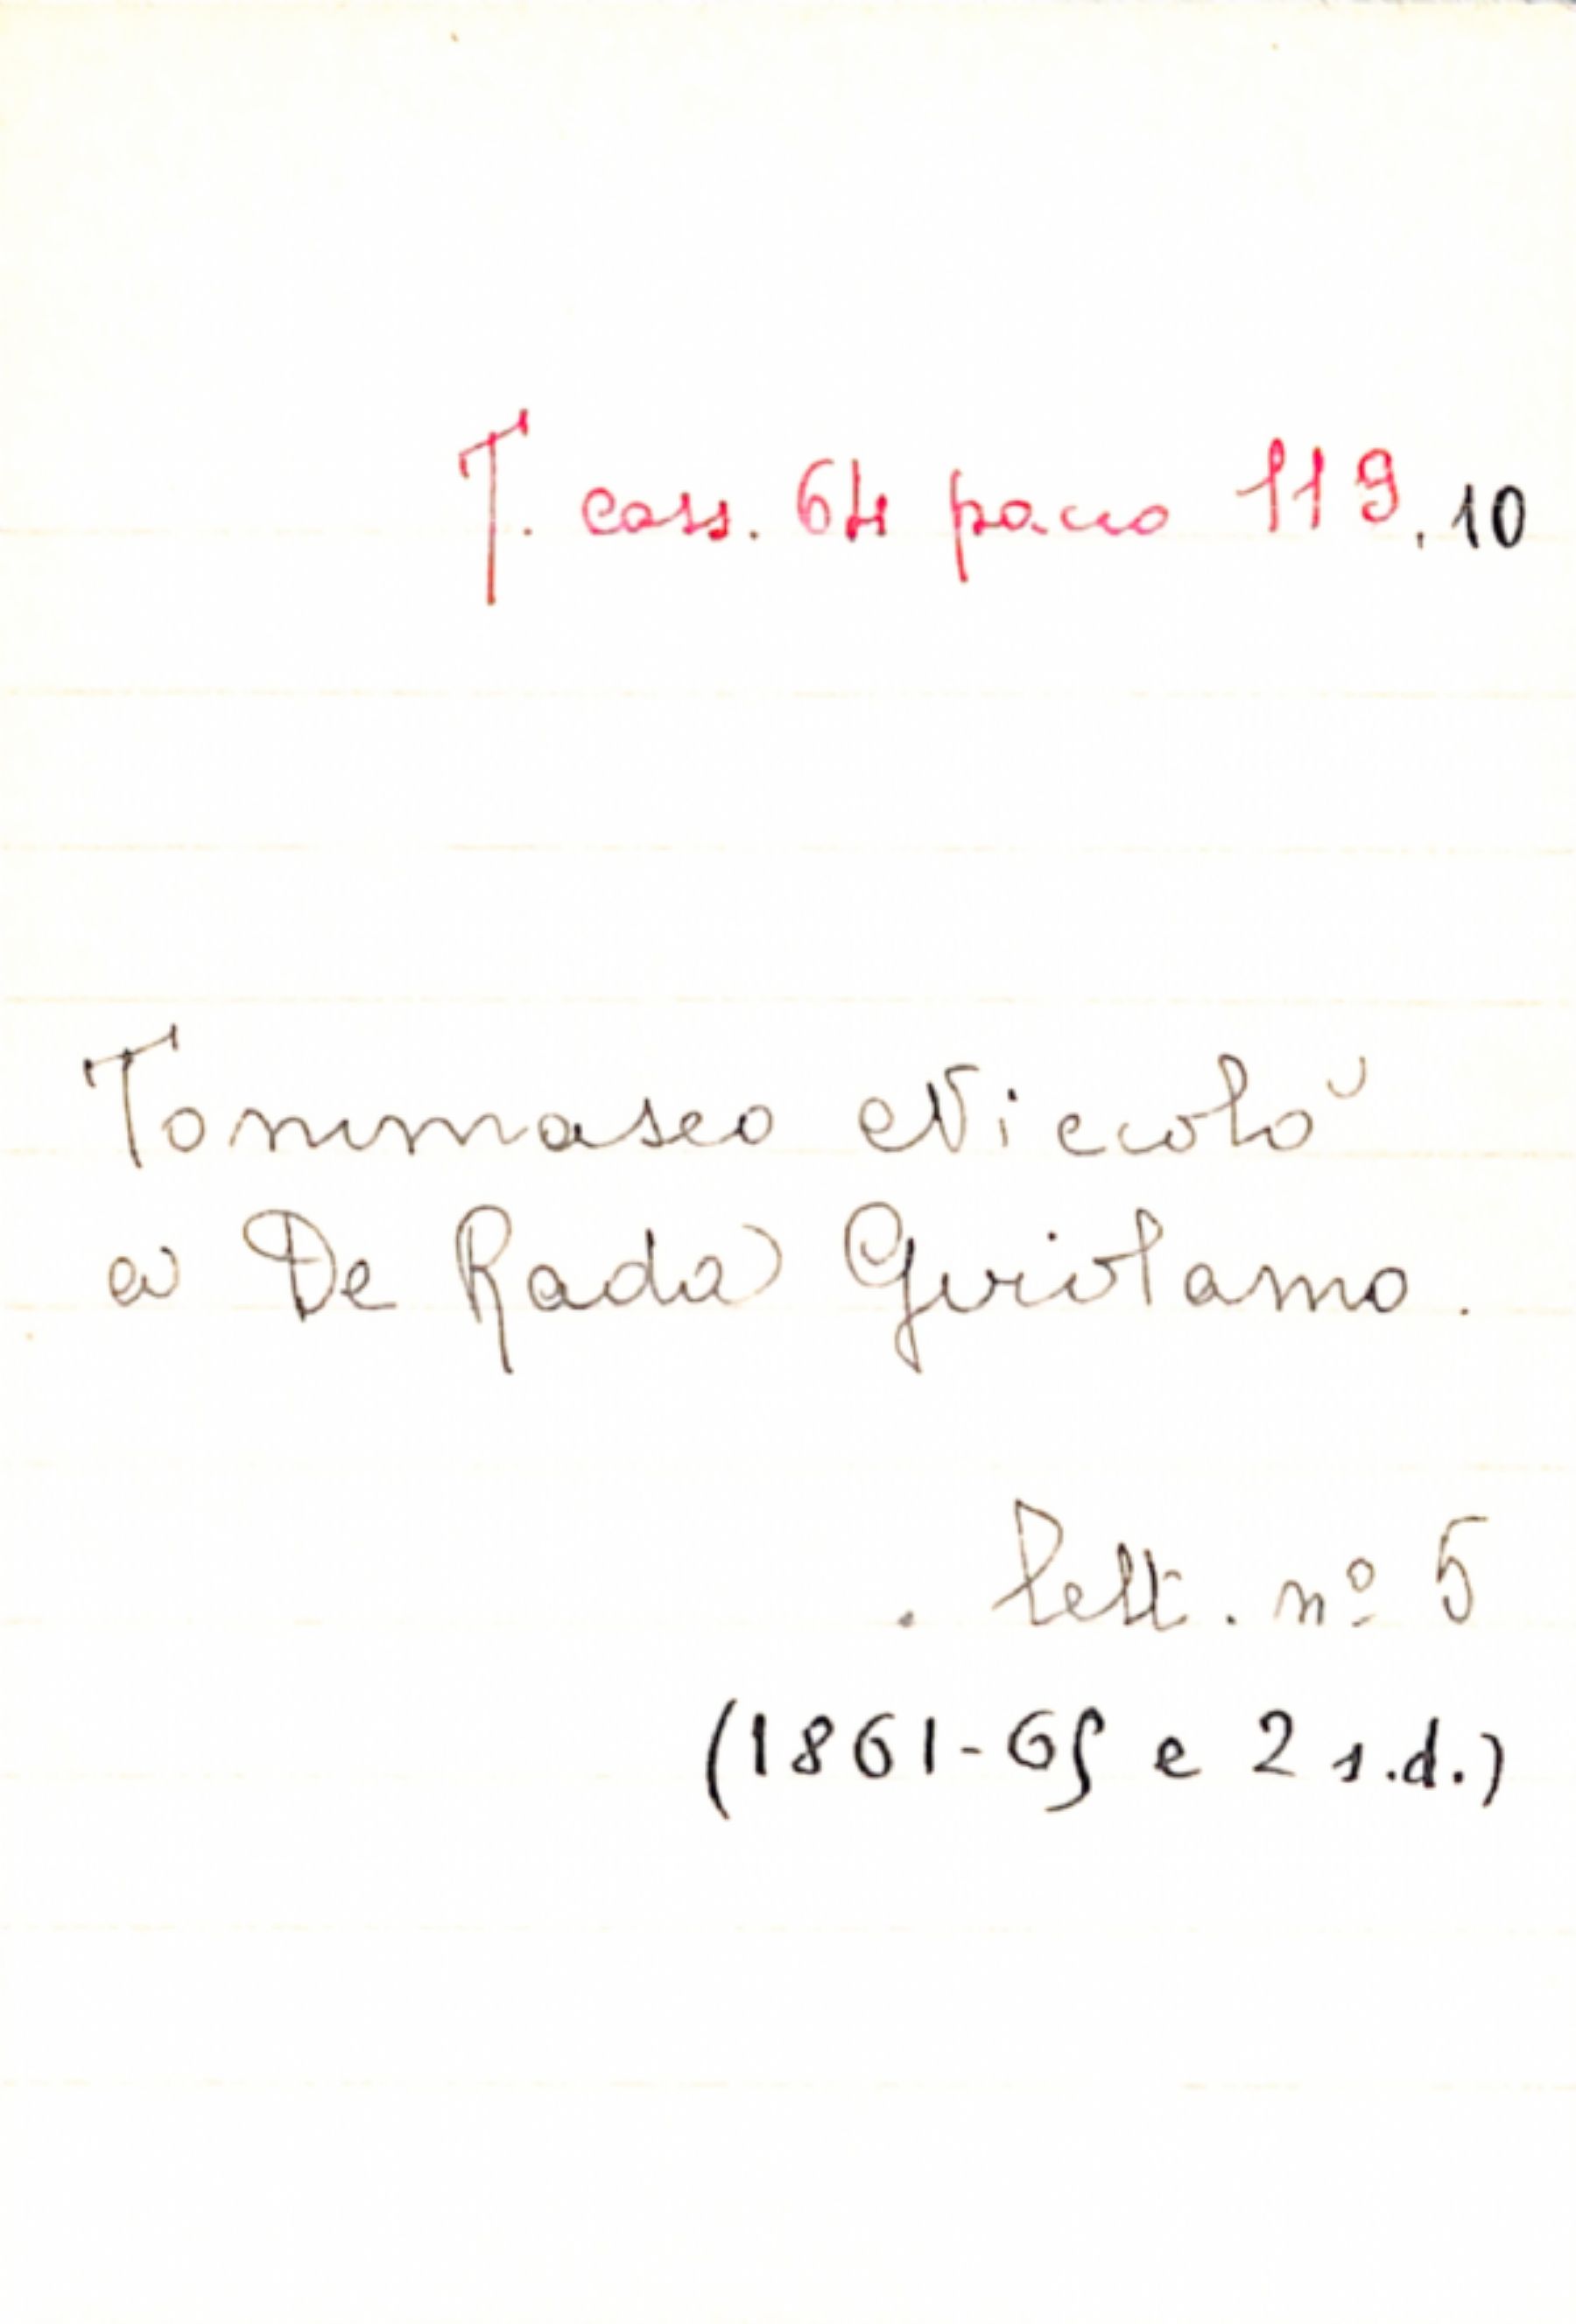 T. cass. 64 pacco 119.10
Tommaseo Niccolò
a De Rada Girolamo.
lett. nº 5
(1861-65 e 2 s.d.)